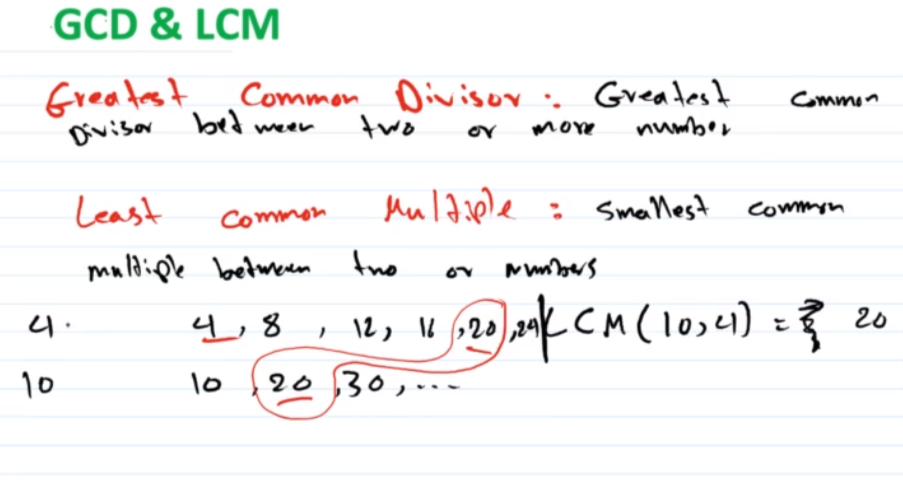 GCD & LCM
Greatest Common Divisor : Greatest common
Divisor between two or more number
Least common Multiple : smallest common
multiple between two or numbers
4. 4, 8, 12, 16, 20, 24 LCM(10,4) = 20
10 10, 20, 30, ...